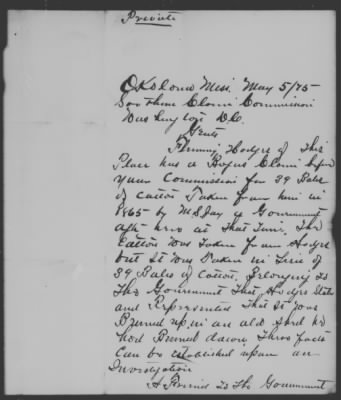 Private
Okolona Miss. May 5/75
Southern Claims Commission
Washington D.C.
Gents
Fleming Hodges of this
Place has a Bogus Claim before
your Commission for 39 Bales
of cotton Taken from him in
1865 by M S Jay a Government
Agt here at that Time. The
Cotton was Taken from Hodges
but it was Taken in Lieu of
39 Bales of Cotton, Belonging To
The Government That Hodges Stole
and Represented That it was
Burned up in an old Shed he
had Burned down, These facts
Can be established upon an
Investigation
A Friend To The Government